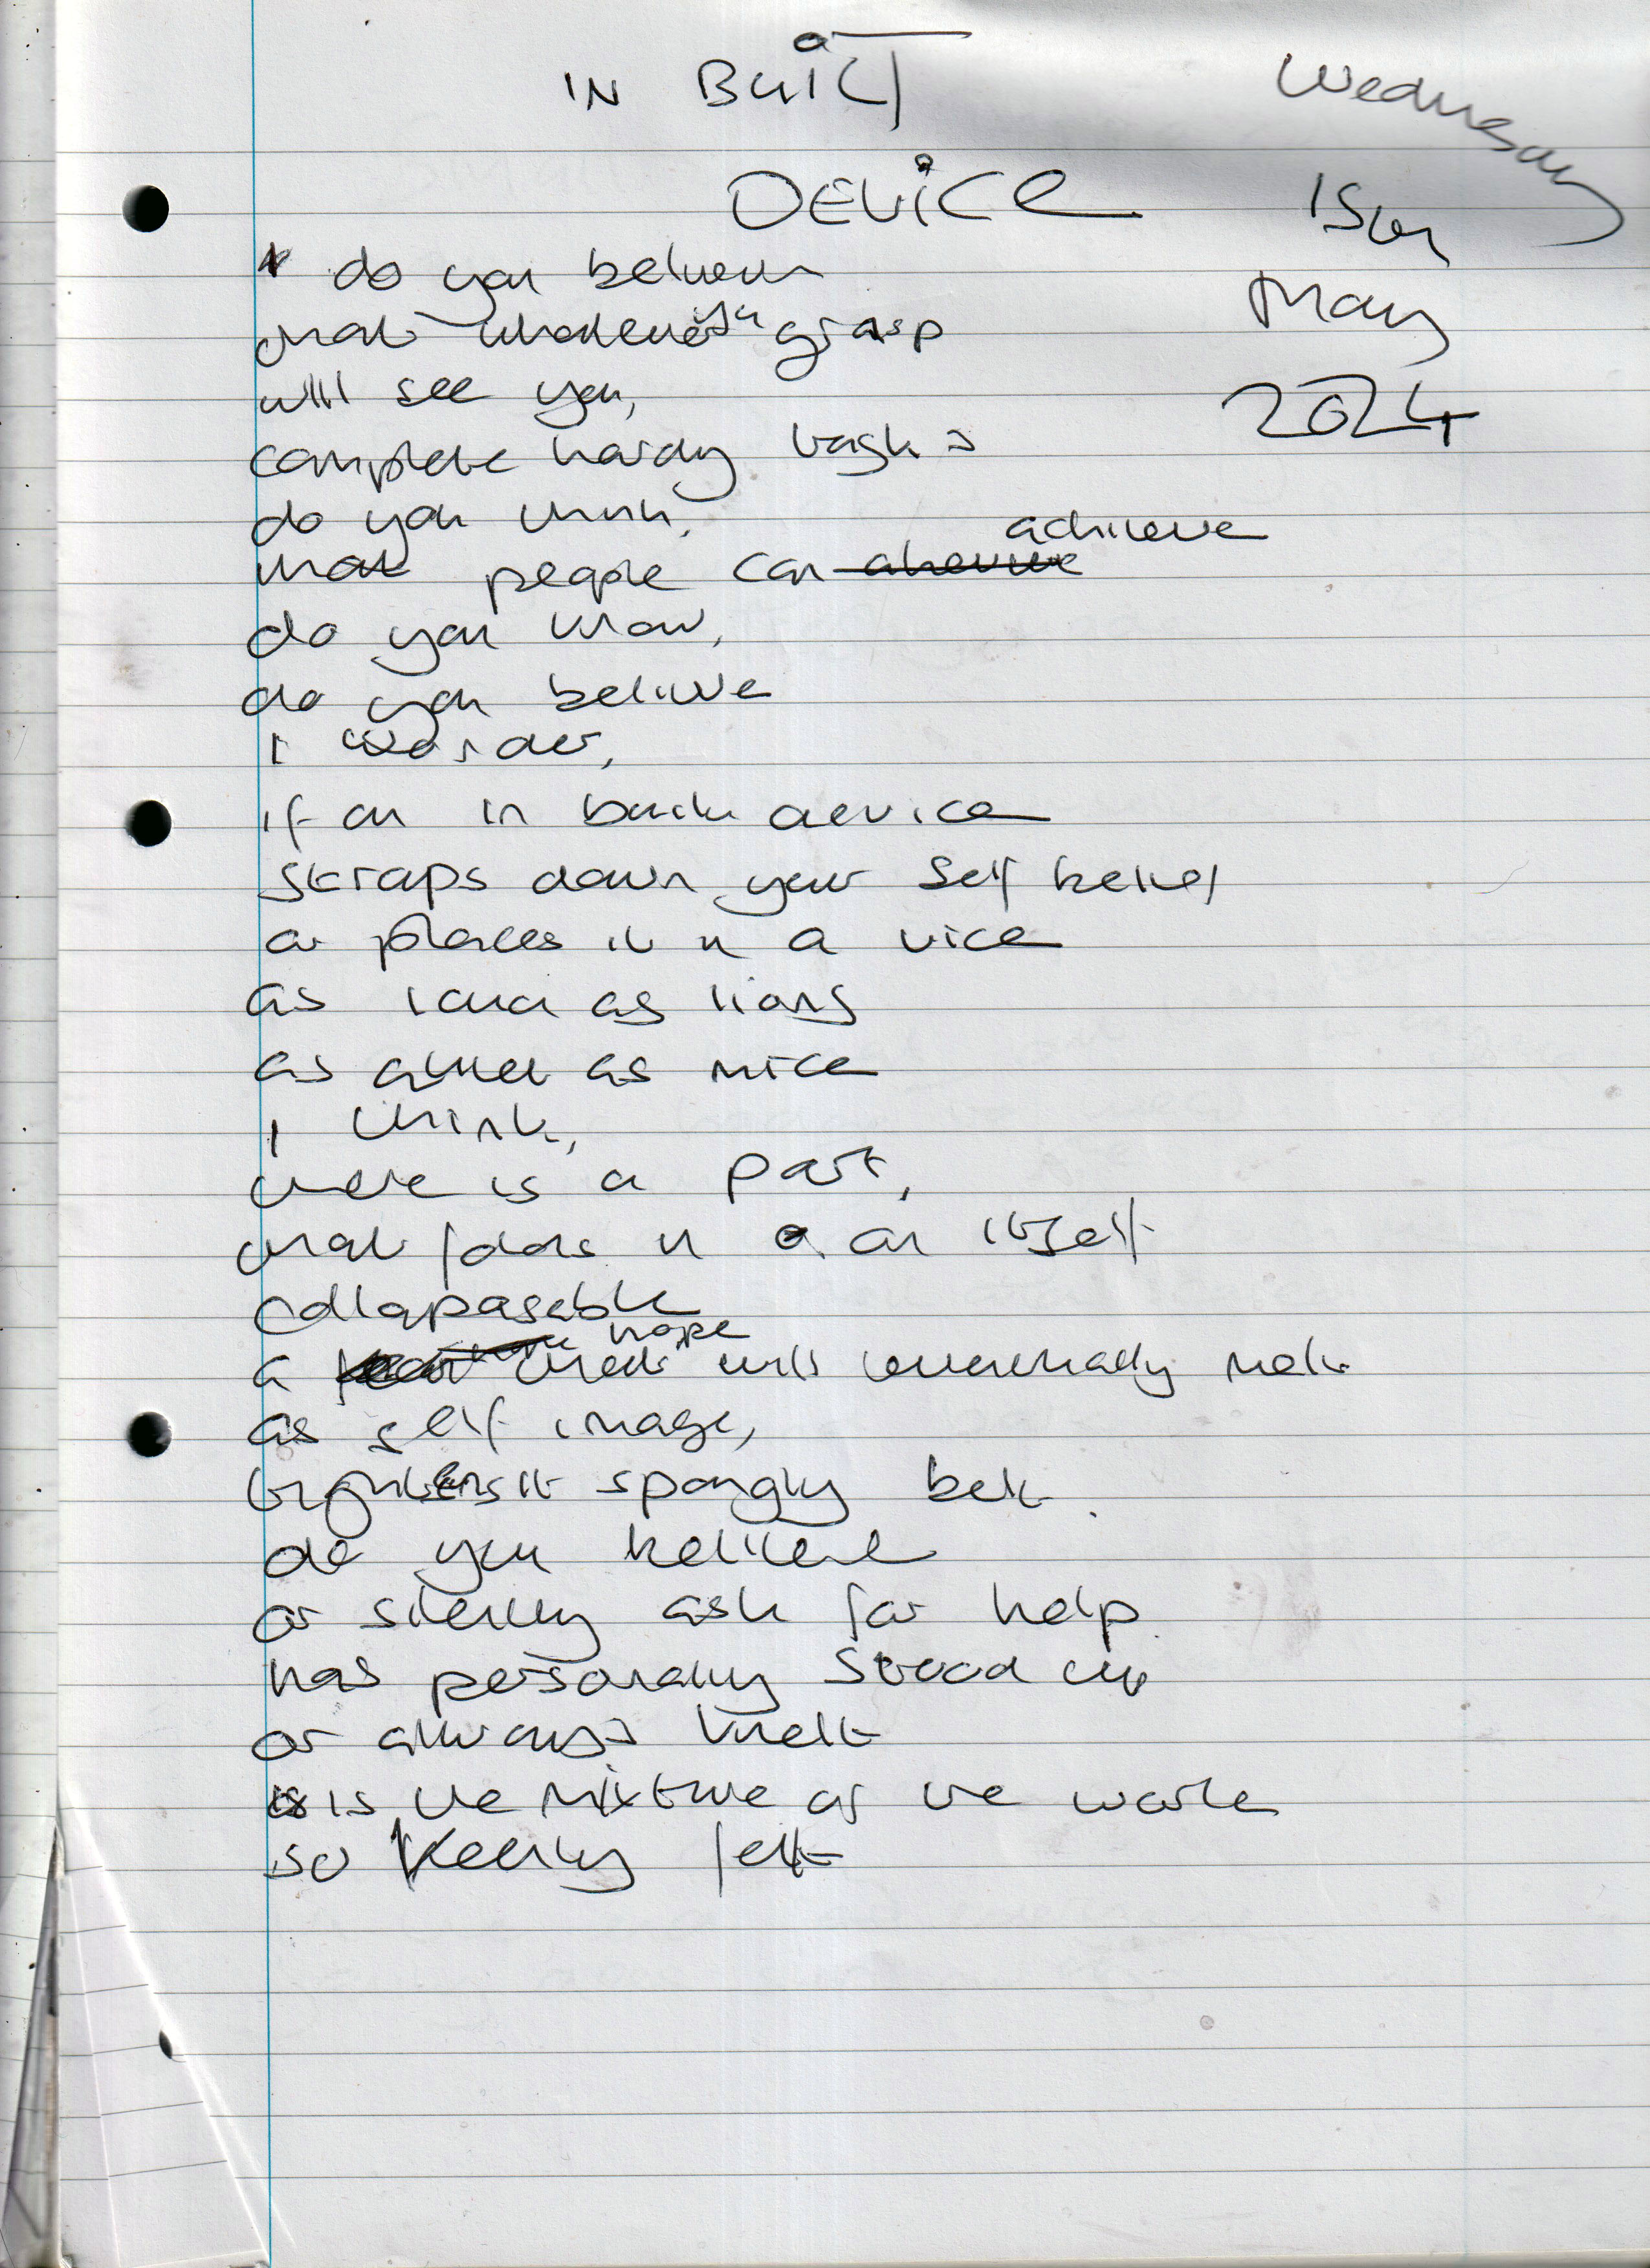 IN BUILT
DEVICE
Wednesday
15th
May
2024
do you believe
that whatever you grasp
will see you,
complete hardy tasks
do you think,
that people can achieve
do you know,
do you believe
I wonder,
if an in built device
straps down your self belief
or places it in a vice
as loud as lions
as quiet as mice
I think,
there is a part,
that folds in on itself
collapaseble
a hope that will eventually melt
as self image,
tightens it spangly belt.
do you believe
or silently ask for help
has personally stood up
or always knelt
is the mixture of the
so keenly felt